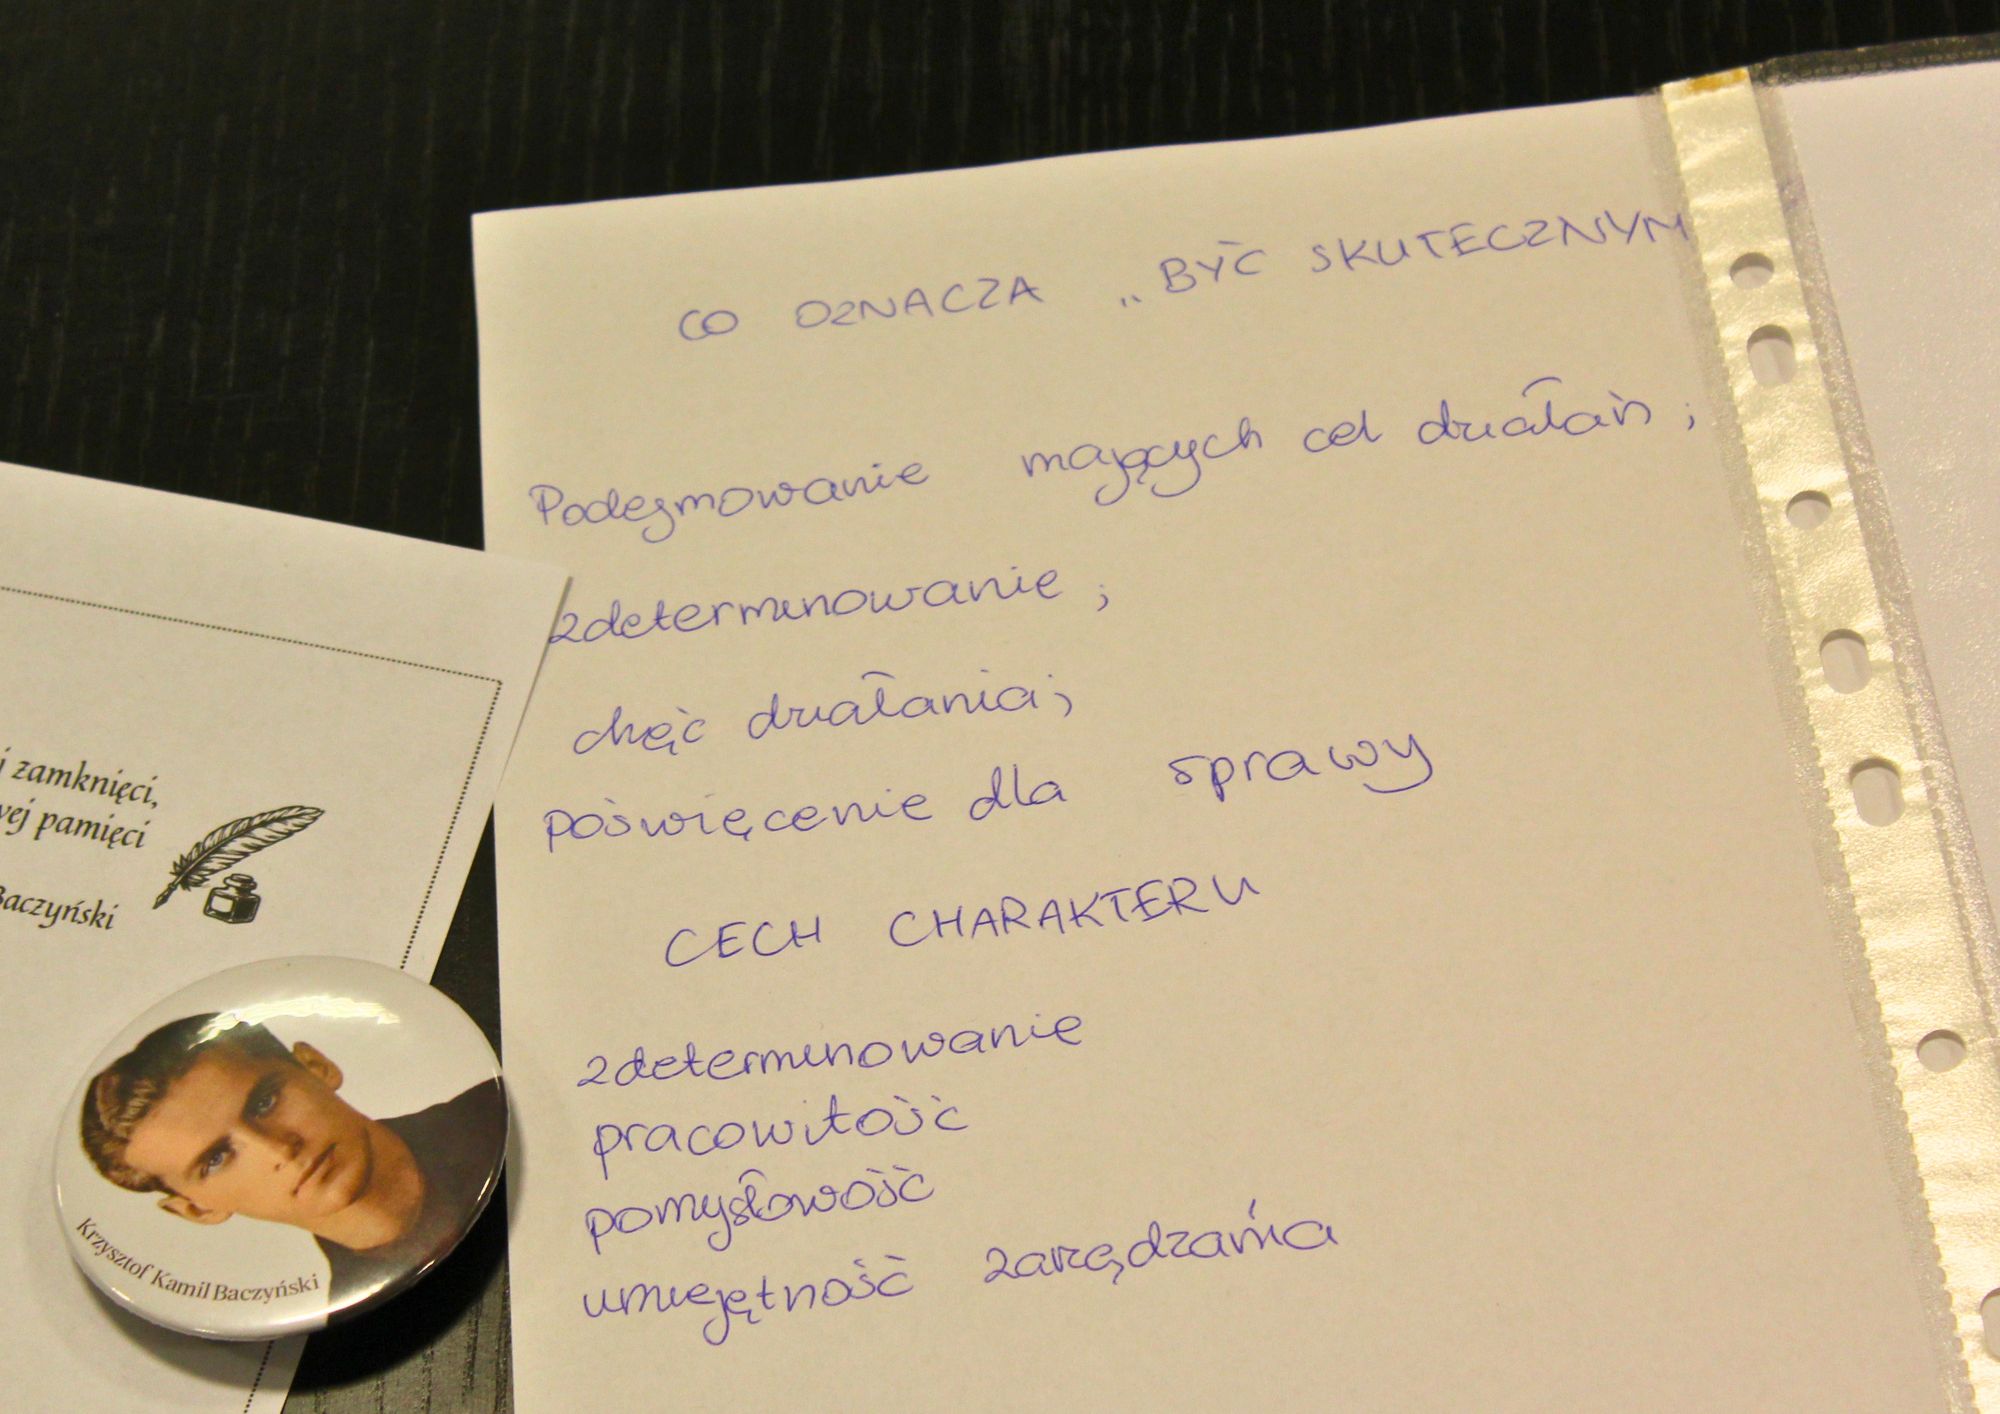 CO OZNACZA „BYĆ SKUTECZNYM
Podejmowanie mających cel działań;
zdeterminowanie;
chęć działania;
poświęcenie dla sprawy
CECH CHARAKTERU
zdeterminowanie
pracowitość
pomysłowość
umiejętność zarządzania
i zamknięci,
wej pamięci
Baczyński
Krzysztof Kamil Baczyński